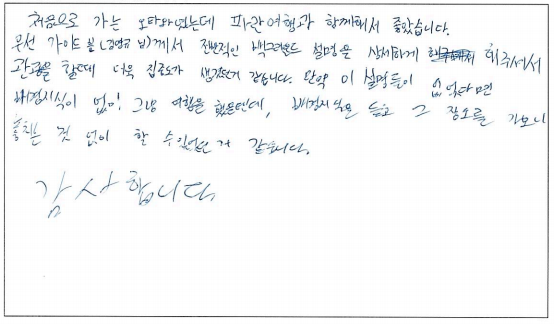 처음으로 가는 오타와였는데 파란여행과 함께해서 좋았습니다.
우선 가이드 분 께서 전반적인 백그라운드 설명을 상세하게 해주셔서
관광을 할때 더욱 집중도가 생겼던거 같습니다. 만약 이 설명들이 없었다면
배경지식이 없이 그냥 여행을 했을텐데, 배경지식을 듣고 그 장소를 가보니
놓치는 것 없이 할 수 있었던 거 같습니다.
감사합니다